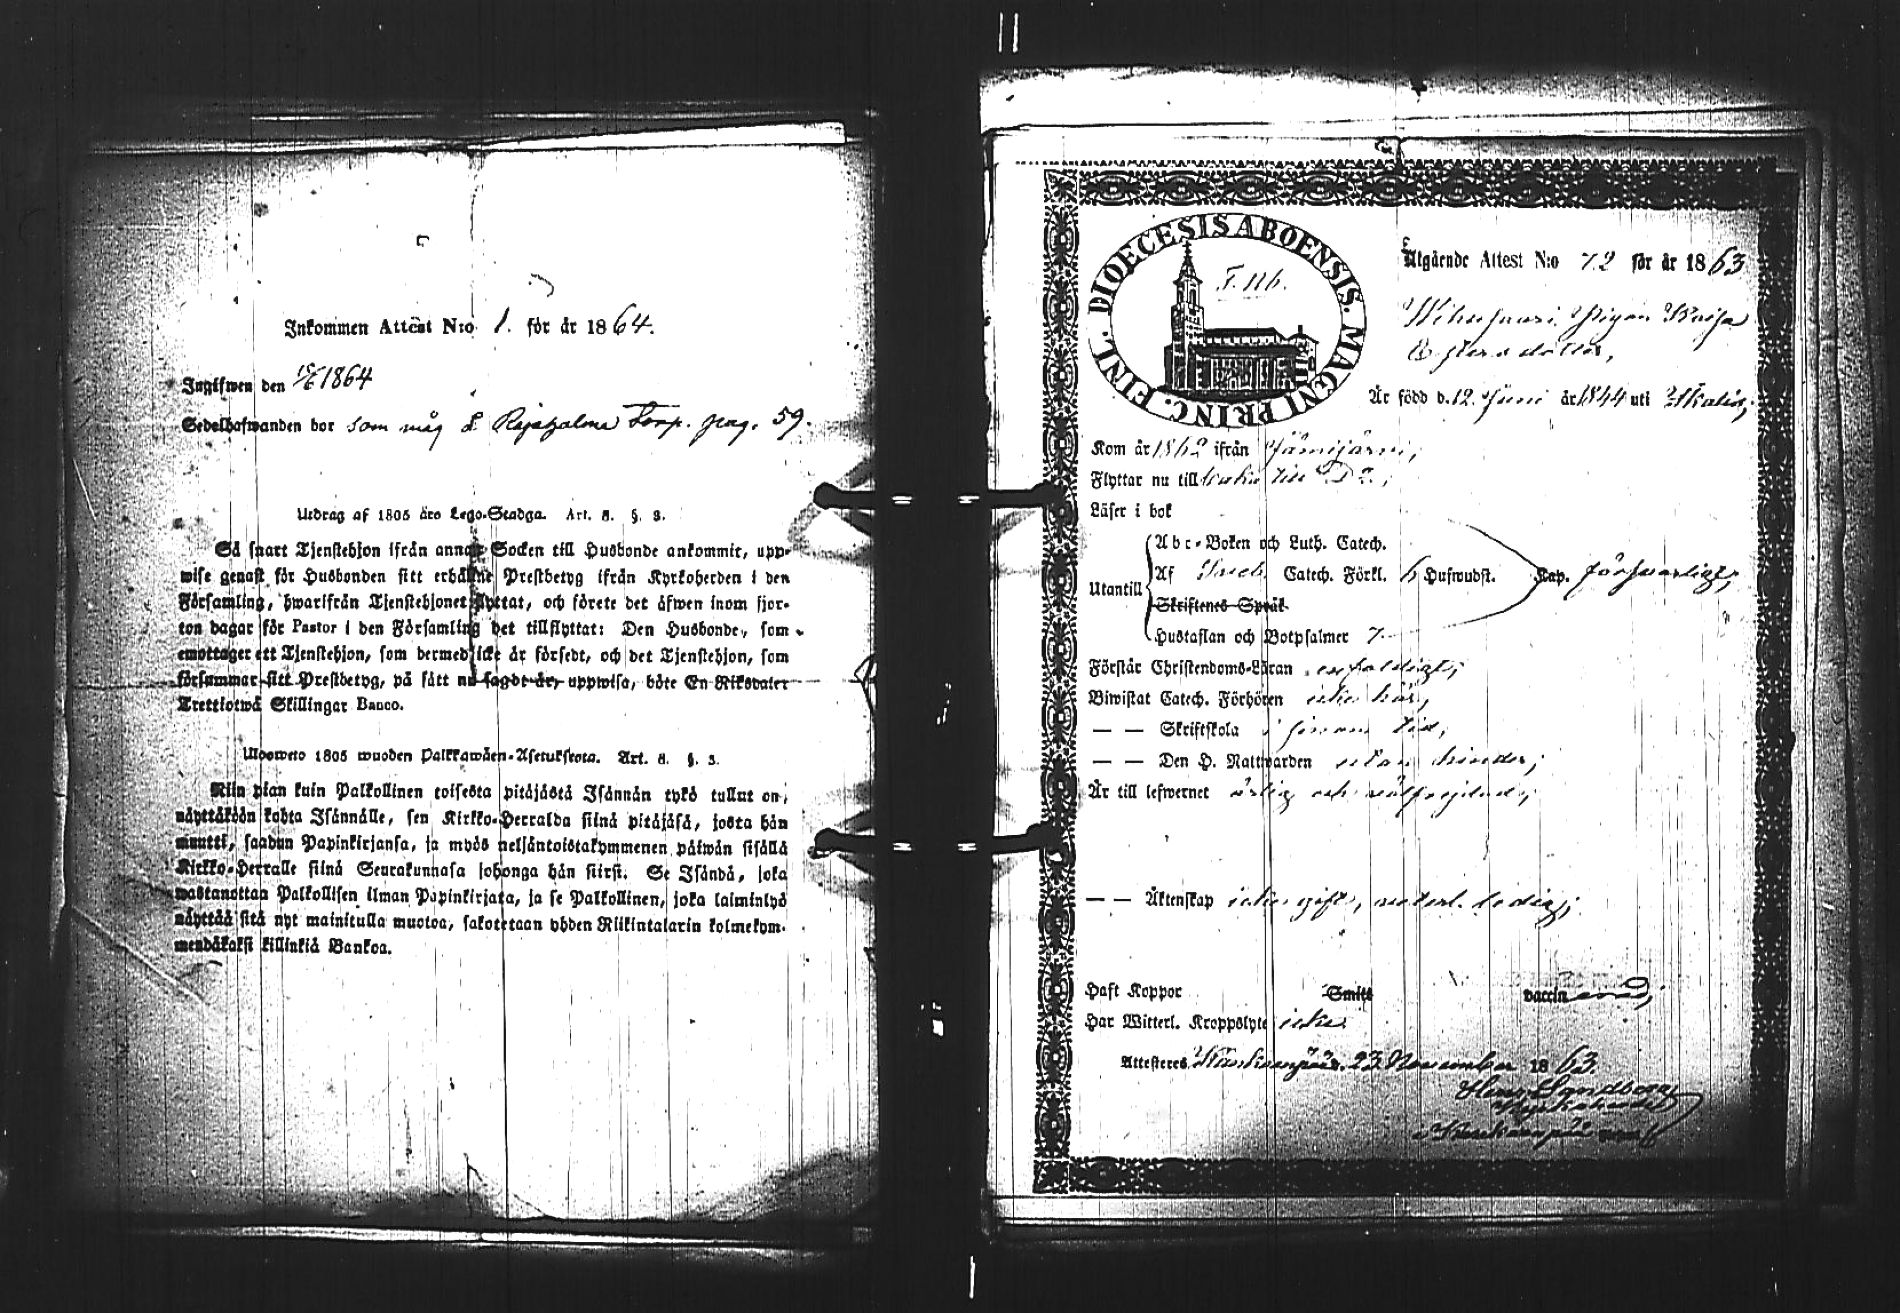 Inkommen Attest N:o 1. för år 1864.
Ingifwen den 15/6 1864
Sedelhafwanden bor som måg å Torp. pag. 59.
Utdrag af 1805 års Lego-Stadga. Art. 8. §. 3.
Så snart Tjenstehjon ifrån annan Socken till Husbonde ankommit, upp-
wise genast för Husbonden sitt erhållne Prestbetyg ifrån Kyrkoherden i den
Församling, hwarifrån Tjenstehjonet flyttat, och förete det äfwen inom fjor-
ton dagar för Pastor i den Församling det tillflyttat: Den Husbonde, som
emottager ett Tjenstehjon, som dermed icke är försedt, och det Tjenstehjon, som
försummar sitt Prestbetyg, på sätt nu sagdt är, uppwisa, böte En Riksdaler
Trettiotwå Skillingar Banco.
Ulosweto 1805 wuoden Palkkawäen-Asetuksesta. Art. 8. §. 3.
Niin pian kuin Palkollinen toisesta pitäjästä Isännän tykö tullut on,
näyttäköön kohta Isännälle, sen Kirkko-Herralda siinä pitäjäsä, josta hän
muutti, saadun Papinkirjansa, ja myös neljäntoistakymmenen päiwän sisällä
Kirkko-Herralle siinä Seurakunnasa johonga hän siirsi. Se Isändä, joka
wastanottaa Palkollisen ilman Papinkirjata, ja se Palkollinen, joka laiminlyö
näyttää sitä nyt mainitulla muotoa, sakotetaan yhden Riikintalarin kolmekym-
mendäkaksi killinkiä Bankoa.
DIOECESIS ABOENSIS. MAGNI PRINC. FINL.
F. 116.
Utgående Attest N:o 72 för år 1863
Pigan Kaisa
dotter,
Är född d. 12 Juni år 1844 uti
Kom år 1862 ifrån Jämijärvi,
Flyttar nu till
Läser i bok
Abc-Boken och Luth. Catech.
Utantill Af Catech. Förkl. 6 Hufwudst. Kap. försvarligt,
Skriftenes Språk
Hustaflan och Botpsalmer 7
Förstår Christendoms-Läran enfaldigt;
Biwistat Catech. Förhören icke här,
— — Skriftskola i sinom tid,
— — Den H. Nattwarden utan hinder;
Är till lefwernet ärlig och välfrejdad;
— — Äktenskap icke gift, veterl. ledig;
Haft Koppor Smitt vaccinerad;
Har Witterl. Kroppslyte icke.
Attesteras Kankaanpää 23 November 1863.